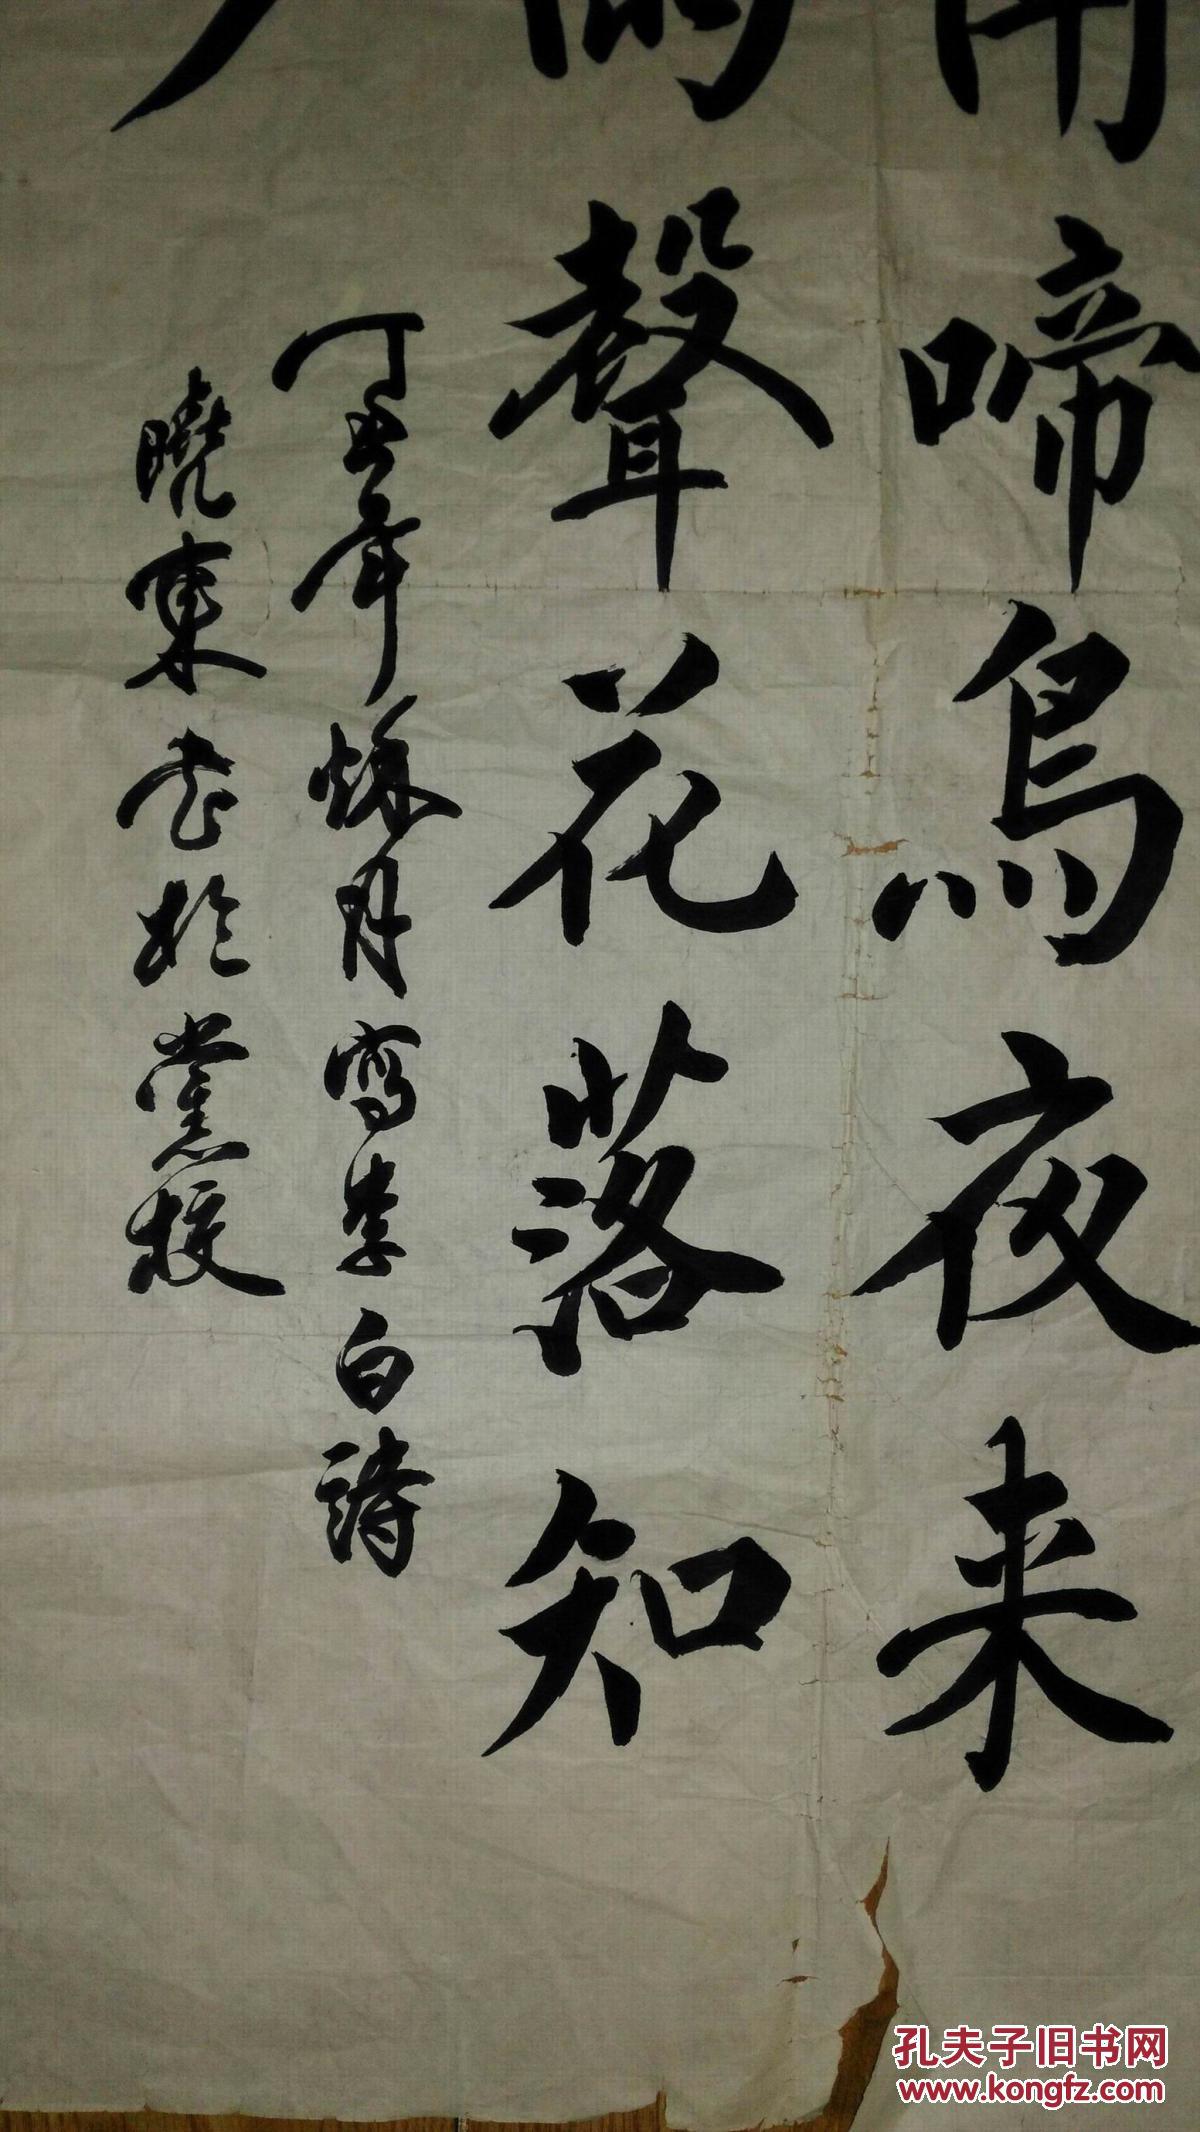 啼鳥夜来
聲花落知
丁丑年秋月寫李白詩
曉東書於黨校
孔夫子旧书网
www.kongfz.com